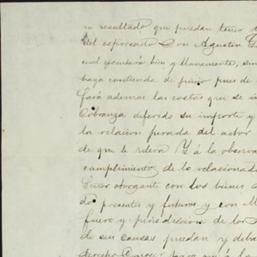 resultado que puedan tener
del espresado Don Agustin
cual ejecutará bien y llanamente, sin
haya contienda de juicio pues de
fará ademas las costas que se
Cobranza deferido su importe y
la relacion jurada del actor
de que le releva Y á la observa
cumplimiento de lo relacionado
Señor otorgante con los bienes
do presentes y futuros, y con
fuero y jurisdiccion de los
de sus causas puedan y deba
derecho